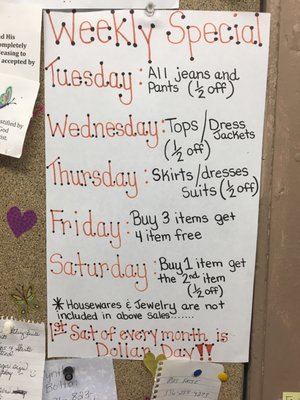 Weekly Special
Tuesday: All jeans and
Pants (1/2 off)
Wednesday: Tops/Dress
Jackets
(1/2 off)
Thursday: Skirts/dresses
Suits (1/2 off)
Friday: Buy 3 items get
4 item free
Saturday: Buy 1 item get
the 2nd item
(1/2 off)
* Housewares & Jewelry are not
included in above sales.......
1st Sat of every month is
Dollar Day!!
and His
completely
leasing to
accepted by
God